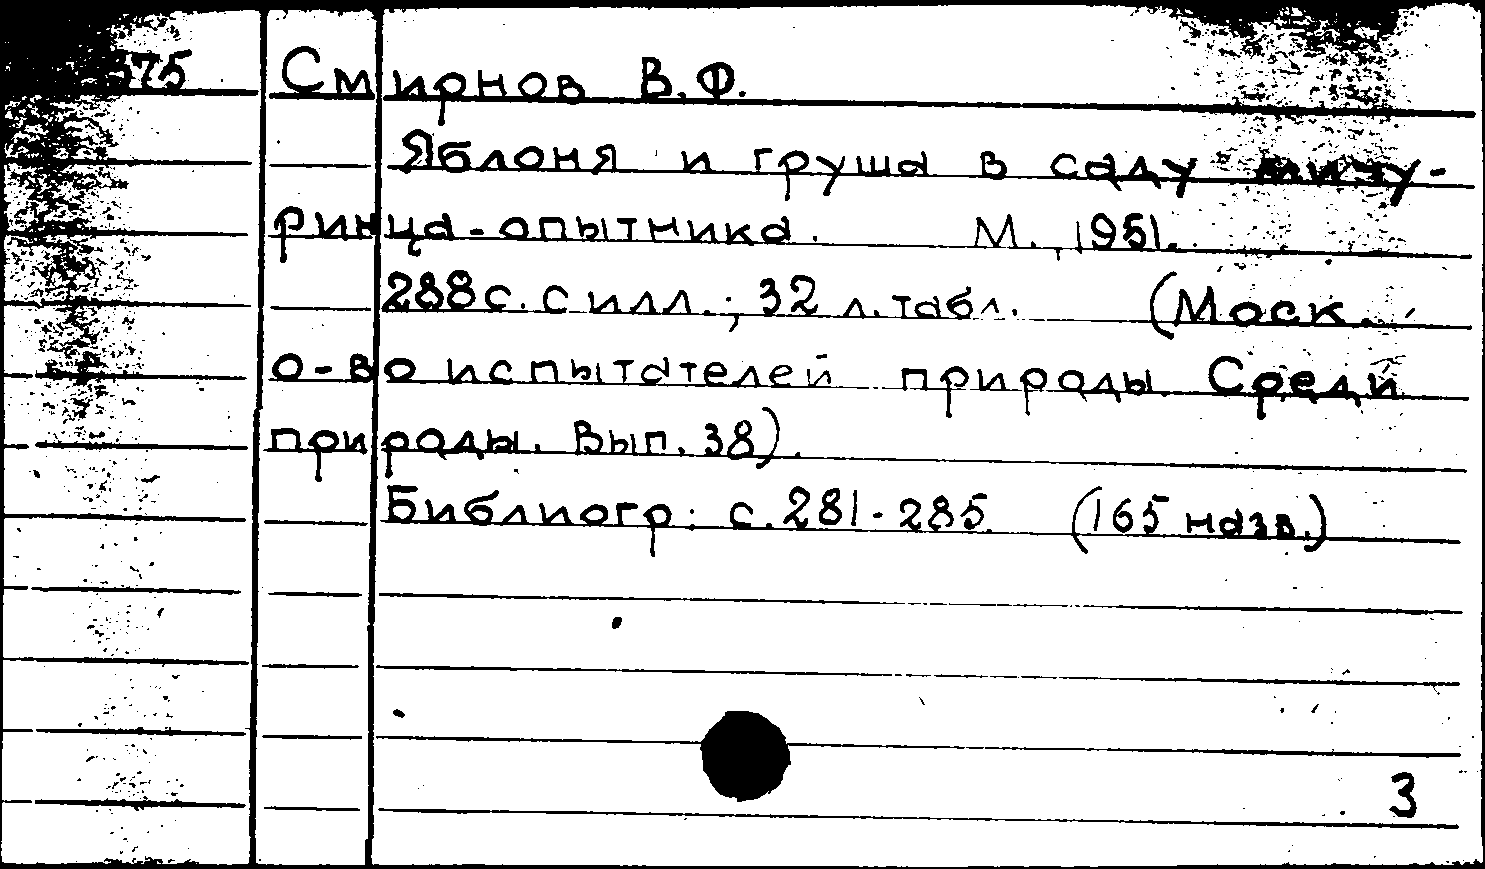 Смирнов В.Ф.
Яблоня и груша в саду мичу-
ринца-опытника. М., 1951.
288 с. с илл.; 32 л. табл. (Моск.
о-во испытателей природы. Среди
природы. Вып. 38).
Библиогр: с. 281-285. (165 назв.)
3